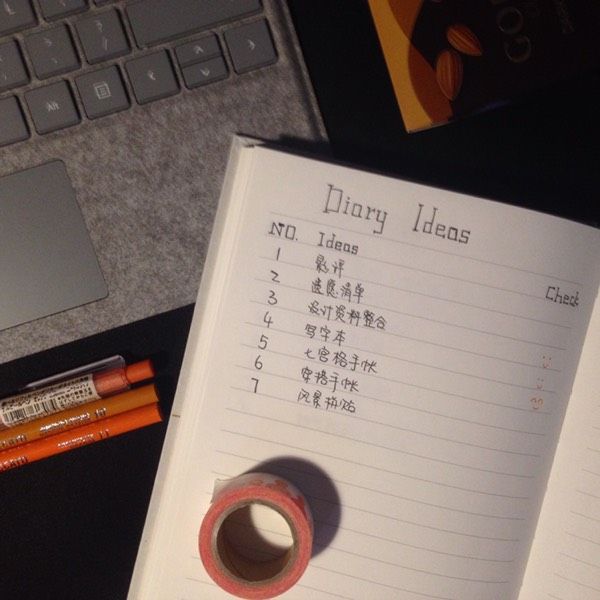 Diary Ideas
NO. Ideas Check
1 影评
2 遗愿清单
3 设计资料整合
4 写字本
5 七宫格手帐
6 穿搭手帐
7 风景拼贴
Alt
GO